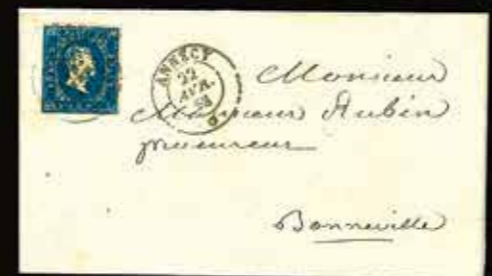 ANNECY
22
AVR.
Monsieur
Monsieur Aubin
procureur
Bonneville